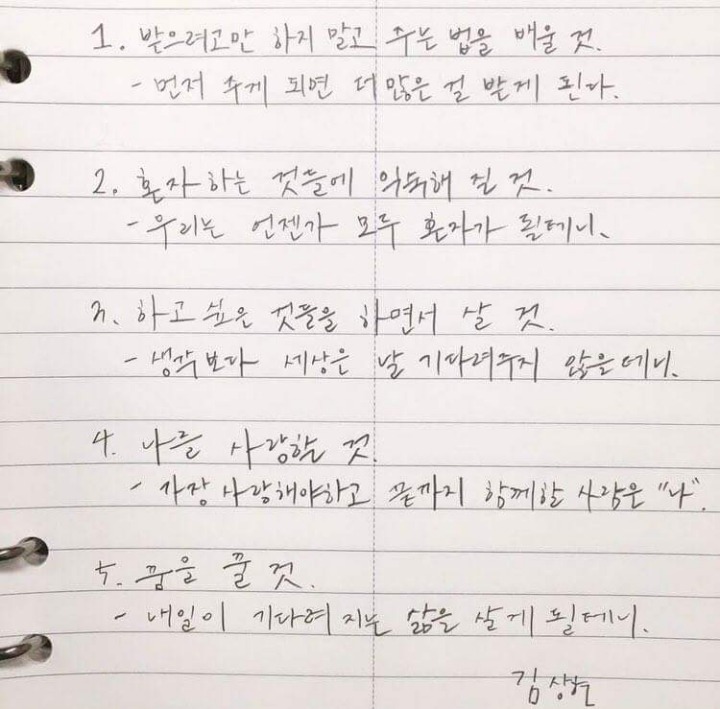 1. 받으려고만 하지 말고 주는 법을 배울 것.
- 먼저 주게 되면 더 많은 걸 받게 된다.
2. 혼자 하는 것들에 익숙해 질 것.
- 우리는 언젠가 모두 혼자가 될테니.
3. 하고 싶은 것들을 하면서 살 것.
- 생각보다 세상은 날 기다려주지 않을테니.
4. 나를 사랑할 것.
- 가장 사랑해야하고 끝까지 함께할 사람은 "나".
5. 꿈을 꿀 것.
- 내일이 기다려 지는 삶을 살게 될테니.
김상현